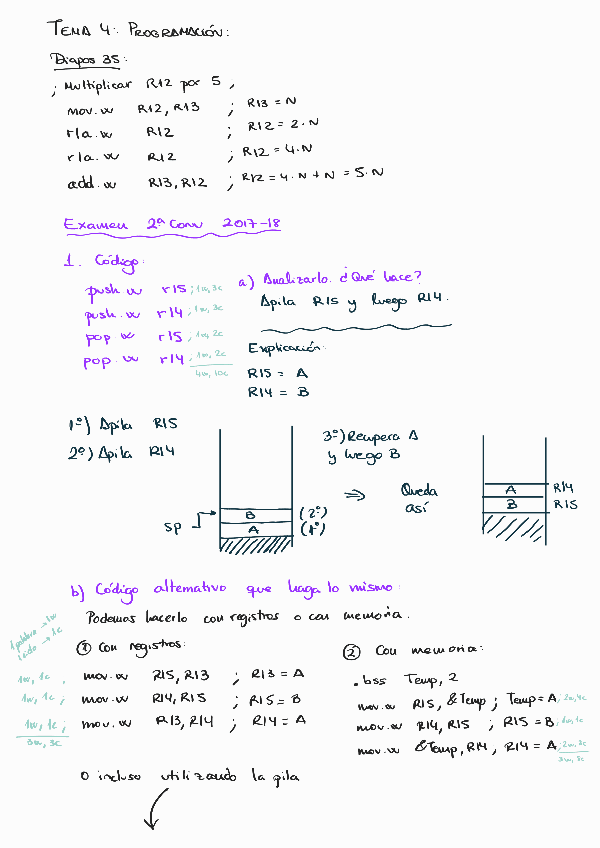 TEMA 4: PROGRAMACIÓN:
Diapos 35:
; Multiplicar R12 por 5 ,
mov.w R12, R13 ; R13 = N
rla.w R12 ; R12 = 2·N
rla.w R12 ; R12 = 4·N
add.w R13, R12 ; R12 = 4·N + N = 5·N
Examen 2ª Conv 2017-18
1. Código:
push.w r15 ; 1w, 3c
push.w r14 ; 1w, 3c
pop.w r15 ; 1w, 2c
pop.w r14 ; 1w, 2c
4w, 10c
a) Analizarlo. ¿Qué hace?
Apila R15 y luego R14.
Explicación:
R15 = A
R14 = B
1º) Apila R15
2º) Apila R14
SP
B (2º)
A (1º)
3º) Recupera A
y luego B
⇒ Queda
así
A R14
B R15
b) Código alternativo que haga lo mismo:
Podemos hacerlo con registros o con memoria.
1 palabra → 1w
1 ciclo → 1c
① Con registros:
1w, 1c ; mov.w R15, R13 ; R13 = A
1w, 1c ; mov.w R14, R15 ; R15 = B
1w, 1c ; mov.w R13, R14 ; R14 = A
3w, 3c
② Con memoria:
.bss Temp, 2
mov.w R15, &Temp ; Temp = A ; 2w, 4c
mov.w R14, R15 ; R15 = B ; 1w, 1c
mov.w &Temp, R14 ; R14 = A ; 2w, 3c
O incluso utilizando la pila